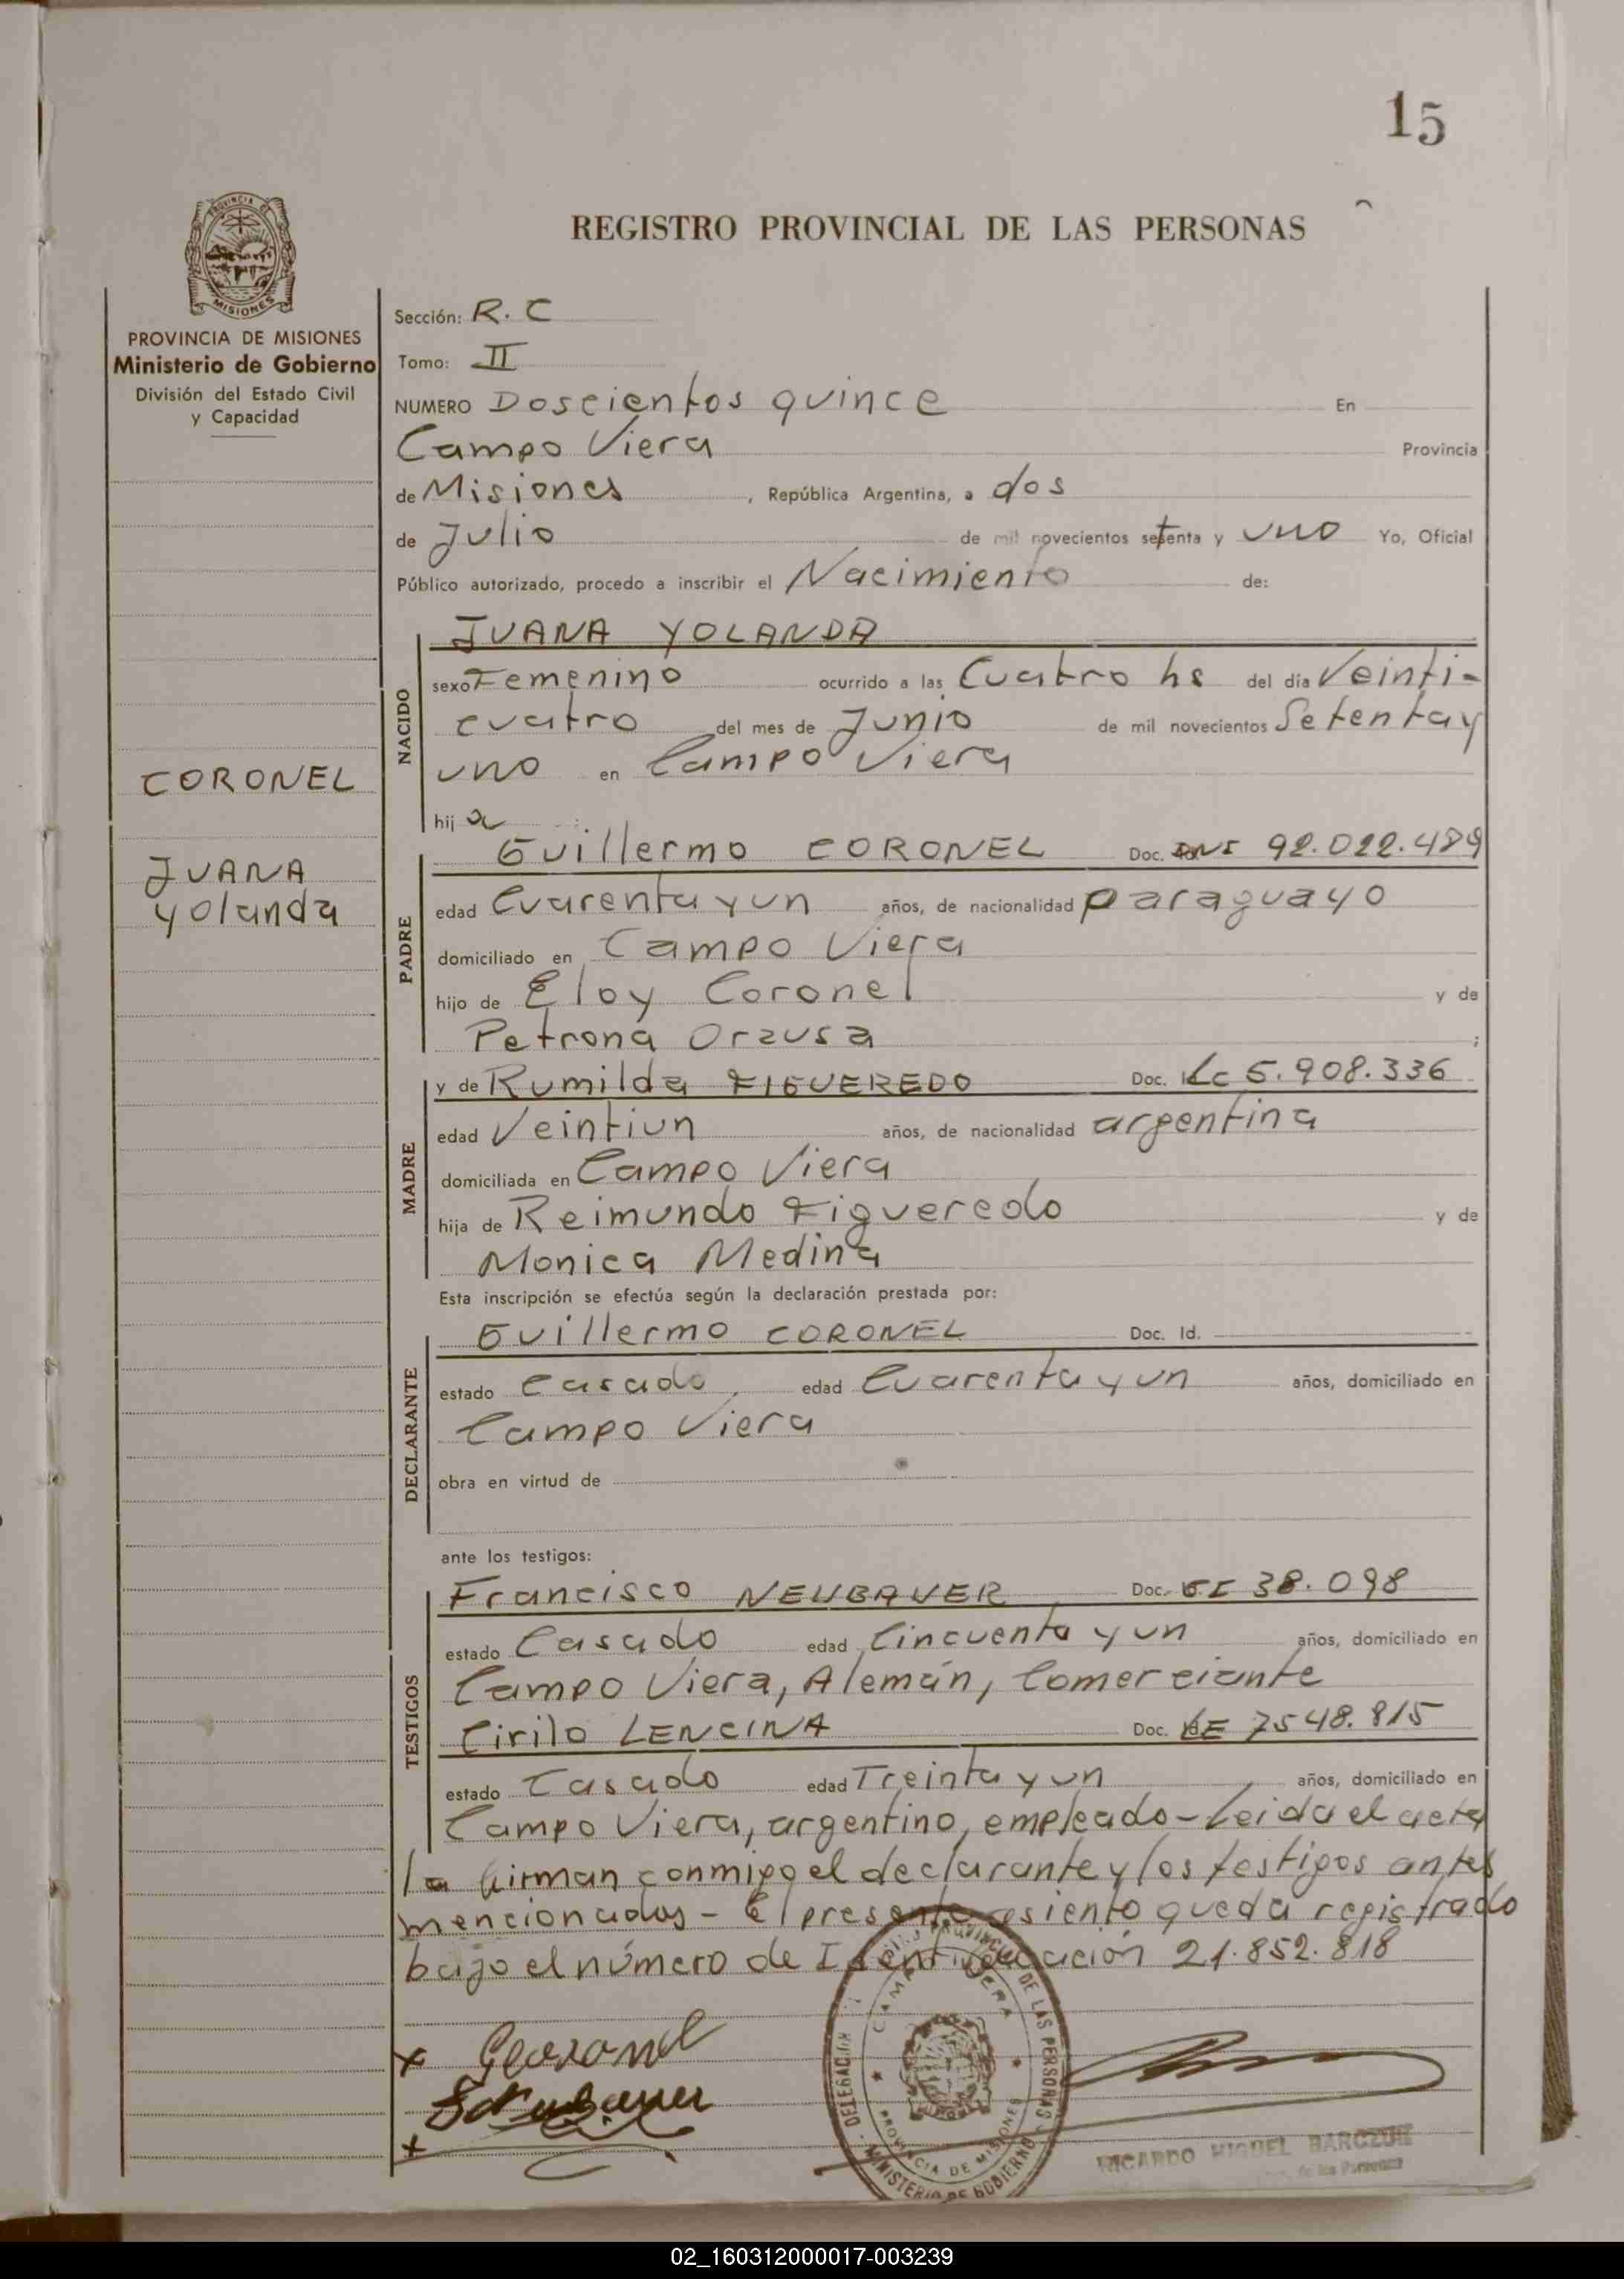 15
REGISTRO PROVINCIAL DE LAS PERSONAS
PROVINCIA DE
MISIONES
PROVINCIA DE MISIONES
Ministerio de Gobierno
División del Estado Civil
y Capacidad
CORONEL
JUANA
Yolanda
Sección: R. C
Tomo: II
NUMERO Doscientos quince En
Campo Viera Provincia
de Misiones, República Argentina, a dos
de Julio de mil novecientos setenta y uno Yo, Oficial
Público autorizado, procedo a inscribir el Nacimiento de:
NACIDO
JUANA YOLANDA
sexo Femenino ocurrido a las Cuatro hs del día Veinti-
cuatro del mes de Junio de mil novecientos Setenta y
uno en Campo Viera
hija
PADRE
Guillermo CORONEL Doc. 92.022.489
edad Cuarenta y un años, de nacionalidad paraguayo
domiciliado en Campo Viera
hijo de Eloy Coronel y de
Petrona Orzusa ;
MADRE
y de Rumilda FIGUEREDO Doc. LC 5.908.336
edad Veintiun años, de nacionalidad argentina
domiciliada en Campo Viera
hija de Reimundo Figueredo y de
Monica Medina
Esta inscripción se efectúa según la declaración prestada por:
DECLARANTE
Guillermo CORONEL Doc. Id.
estado Casado edad Cuarenta y un años, domiciliado en
Campo Viera
obra en virtud de
ante los testigos:
TESTIGOS
Francisco NEUBAUER Doc. CI 38.098
estado Casado edad Cincuenta y un años, domiciliado en
Campo Viera, Alemán, Comerciante
Cirilo LENCINA Doc. LE 7548.815
estado Casado edad Treinta y un años, domiciliado en
Campo Viera, argentino, empleado - Leida el acta
la firman conmigo el declarante y los testigos antes
mencionados - El presente asiento queda registrado
bajo el número de Identificación 21.852.818
x GCoronel
x
DELEGACION PROVINCIAL DE LAS PERSONAS
CAMPO VIERA
PROVINCIA DE MISIONES
MINISTERIO DE GOBIERNO
RICARDO MIGUEL BARCZUK
de las Personas
02_160312000017-003239